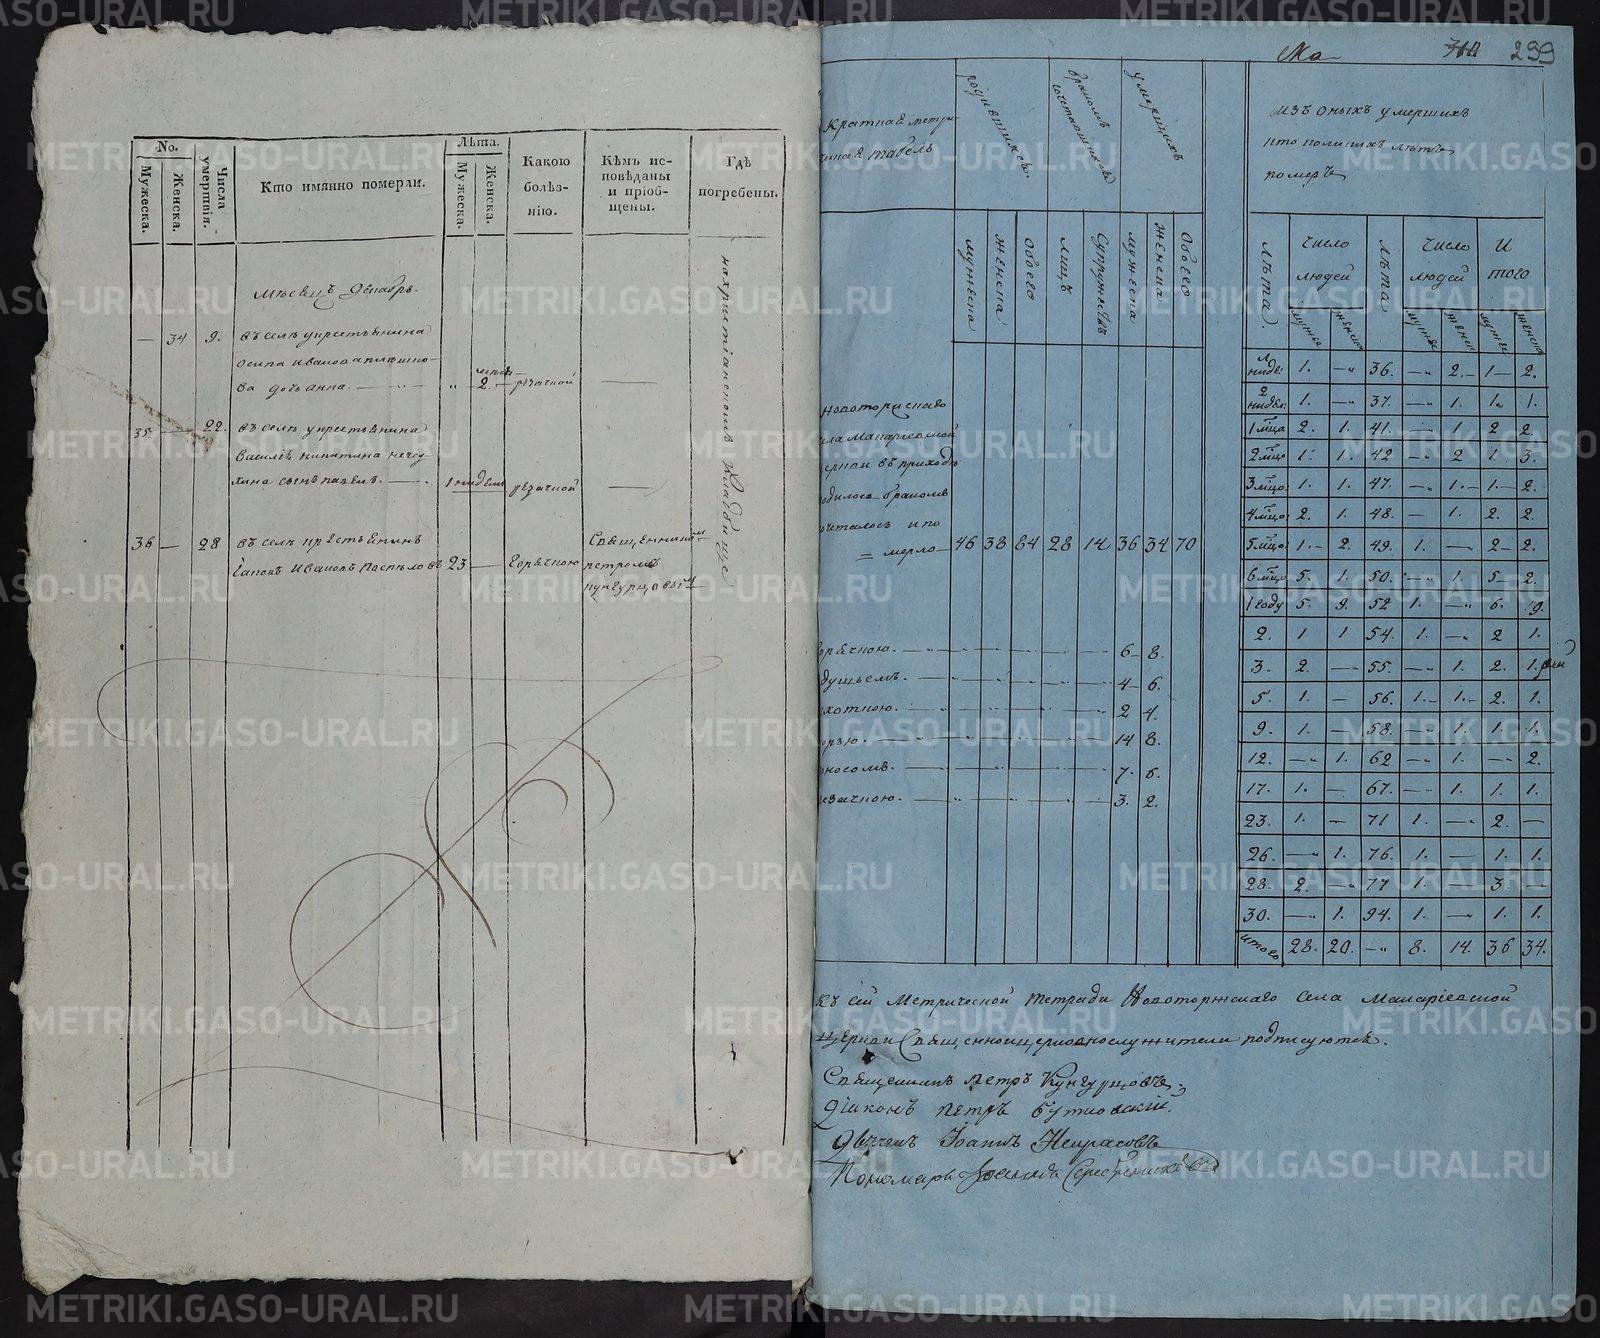 No.
Мужеска.
Женска.
Числа умертвія.
Кто имянно померли.
Лѣта.
Мужеска.
Женска.
Какою
болѣз-
нію.
Кѣмъ ис-
повѣданы
и пріоб-
щены.
Гдѣ
погребены.
мѣсецъ декабрь.
— 34 9. въ селѣ укрестьянина
осипа иванова
ва дочь анна. — „ 2. — резачной —
35 — 22. въ селѣ укрестьянина
василія никитина
хина сынъ павелъ. — 1 недели резачной —
36 — 28 въ селѣ крестьянинъ
иванов поспѣловъ 23 — горячкою
Священником
петромъ
кунгурцовымъ
на христіанскомъ кладбище
299
Краткая метри
чная табель
родившихся.
бракомъ сочетавшихся
умершихъ
мужеска
женска
обоего
лицъ
супружествъ
мужеска
женска
обоего
Новоторжскаго
села макарьевской
церкви въ приходѣ
родилось бракомъ
сочеталось и по
= мерло 46 38 84 28 14 36 34 70
горячкою. 6 8.
удушьемъ. 4 6.
чахоткою. 2 4.
корью. 14 8.
поносомъ. 7. 6.
резачкою. 3. 2.
изъ оныхъ умершихъ
кто коликихъ лѣтъ
померъ
лѣта
число людей
лѣта
число людей
и того
мужес женска мужес женск мужес женска
1 недел: 1. — 36. — 2. 1 2.
2 недел: 1. — 37. — 1. 1. 1.
1 мца 2. 1. 41. — 1. 2 2.
2 мца 1. 1. 42 — 2 1. 3.
3 мца: 1. 1. 47. — 1. 1. 2.
4 мца: 2. 1. 48. — 1. 2. 2.
5 мца: 1. 2. 49. 1. — 2 2.
6 мца 5. 1. 50. — 1. 5 2.
1 году 5. 9. 52 1. — 6. 9.
2. 1 1 54. 1. — 2 1.
3. 2. — 55. — 1. 2. 1.
5. 1. — 56. 1. 1. 2. 1.
9. 1. — 58. — 1. 1. 1.
12. — 1. 62 — 1. — 2.
17. 1. — 67. — 1. 1. 1.
23. 1. — 71 1. — 2. —
26. — 1. 76. 1. — 1. 1.
28. 2. — 77 1. — 3. —
30. — 1. 94. 1. — 1. 1.
итого 28. 20. — 8. 14. 36 34.
Къ сей метрической тетради Новоторжскаго села макарьевской
церкви Священноцерковнослужители подписуются.
Священникъ петръ Кунгурцовъ.
діаконъ петръ
дьячекъ Іоаннъ Некрасовъ
Пономарь
METRIKI.GASO-URAL.RU